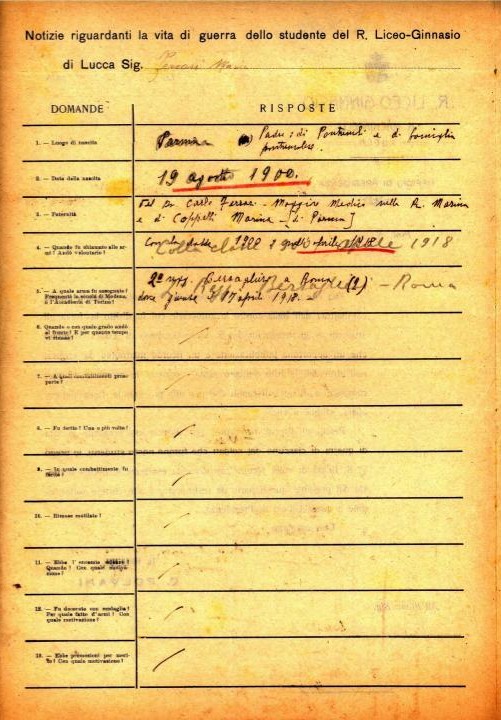 Notizie riguardanti la vita di guerra dello studente del R. Liceo-Ginnasio
di Lucca Sig. Ferrari
DOMANDE
RISPOSTE
1. — Luogo di nascita
Parma Padre: di Pontremoli e di famiglia
pontremolese.
2. — Data della nascita
19 agosto 1900.
3. — Paternità
Carlo Maggiore Medico nella R. Marina
e di Coppelli Marina [di Parma]
4. — Quando fu chiamato alle armi? Andò volontario?
Colla classe 1900 aprile 1918
5. — A quale arma fu assegnato?
Frequentò la scuola di Modena,
o l'Accademia di Torino?
2º regg. Bersaglieri a Roma (2) – Roma
dove giunse 17 aprile 1918.
6. Quando e con quale grado andò
al fronte? E per quanto tempo
vi rimase?
7. — A quali combattimenti prese
parte?
8. — Fu ferito? Una o più volte?
9. — In quale combattimento fu
ferito?
10. — Rimase mutilato?
11. — Ebbe l'encomio solenne?
Quando? Con quale motivazione?
12. — Fu decorato con medaglia?
Per quale fatto d'armi? Con
quale motivazione?
13. — Ebbe promozioni per merito? Con quale motivazione?